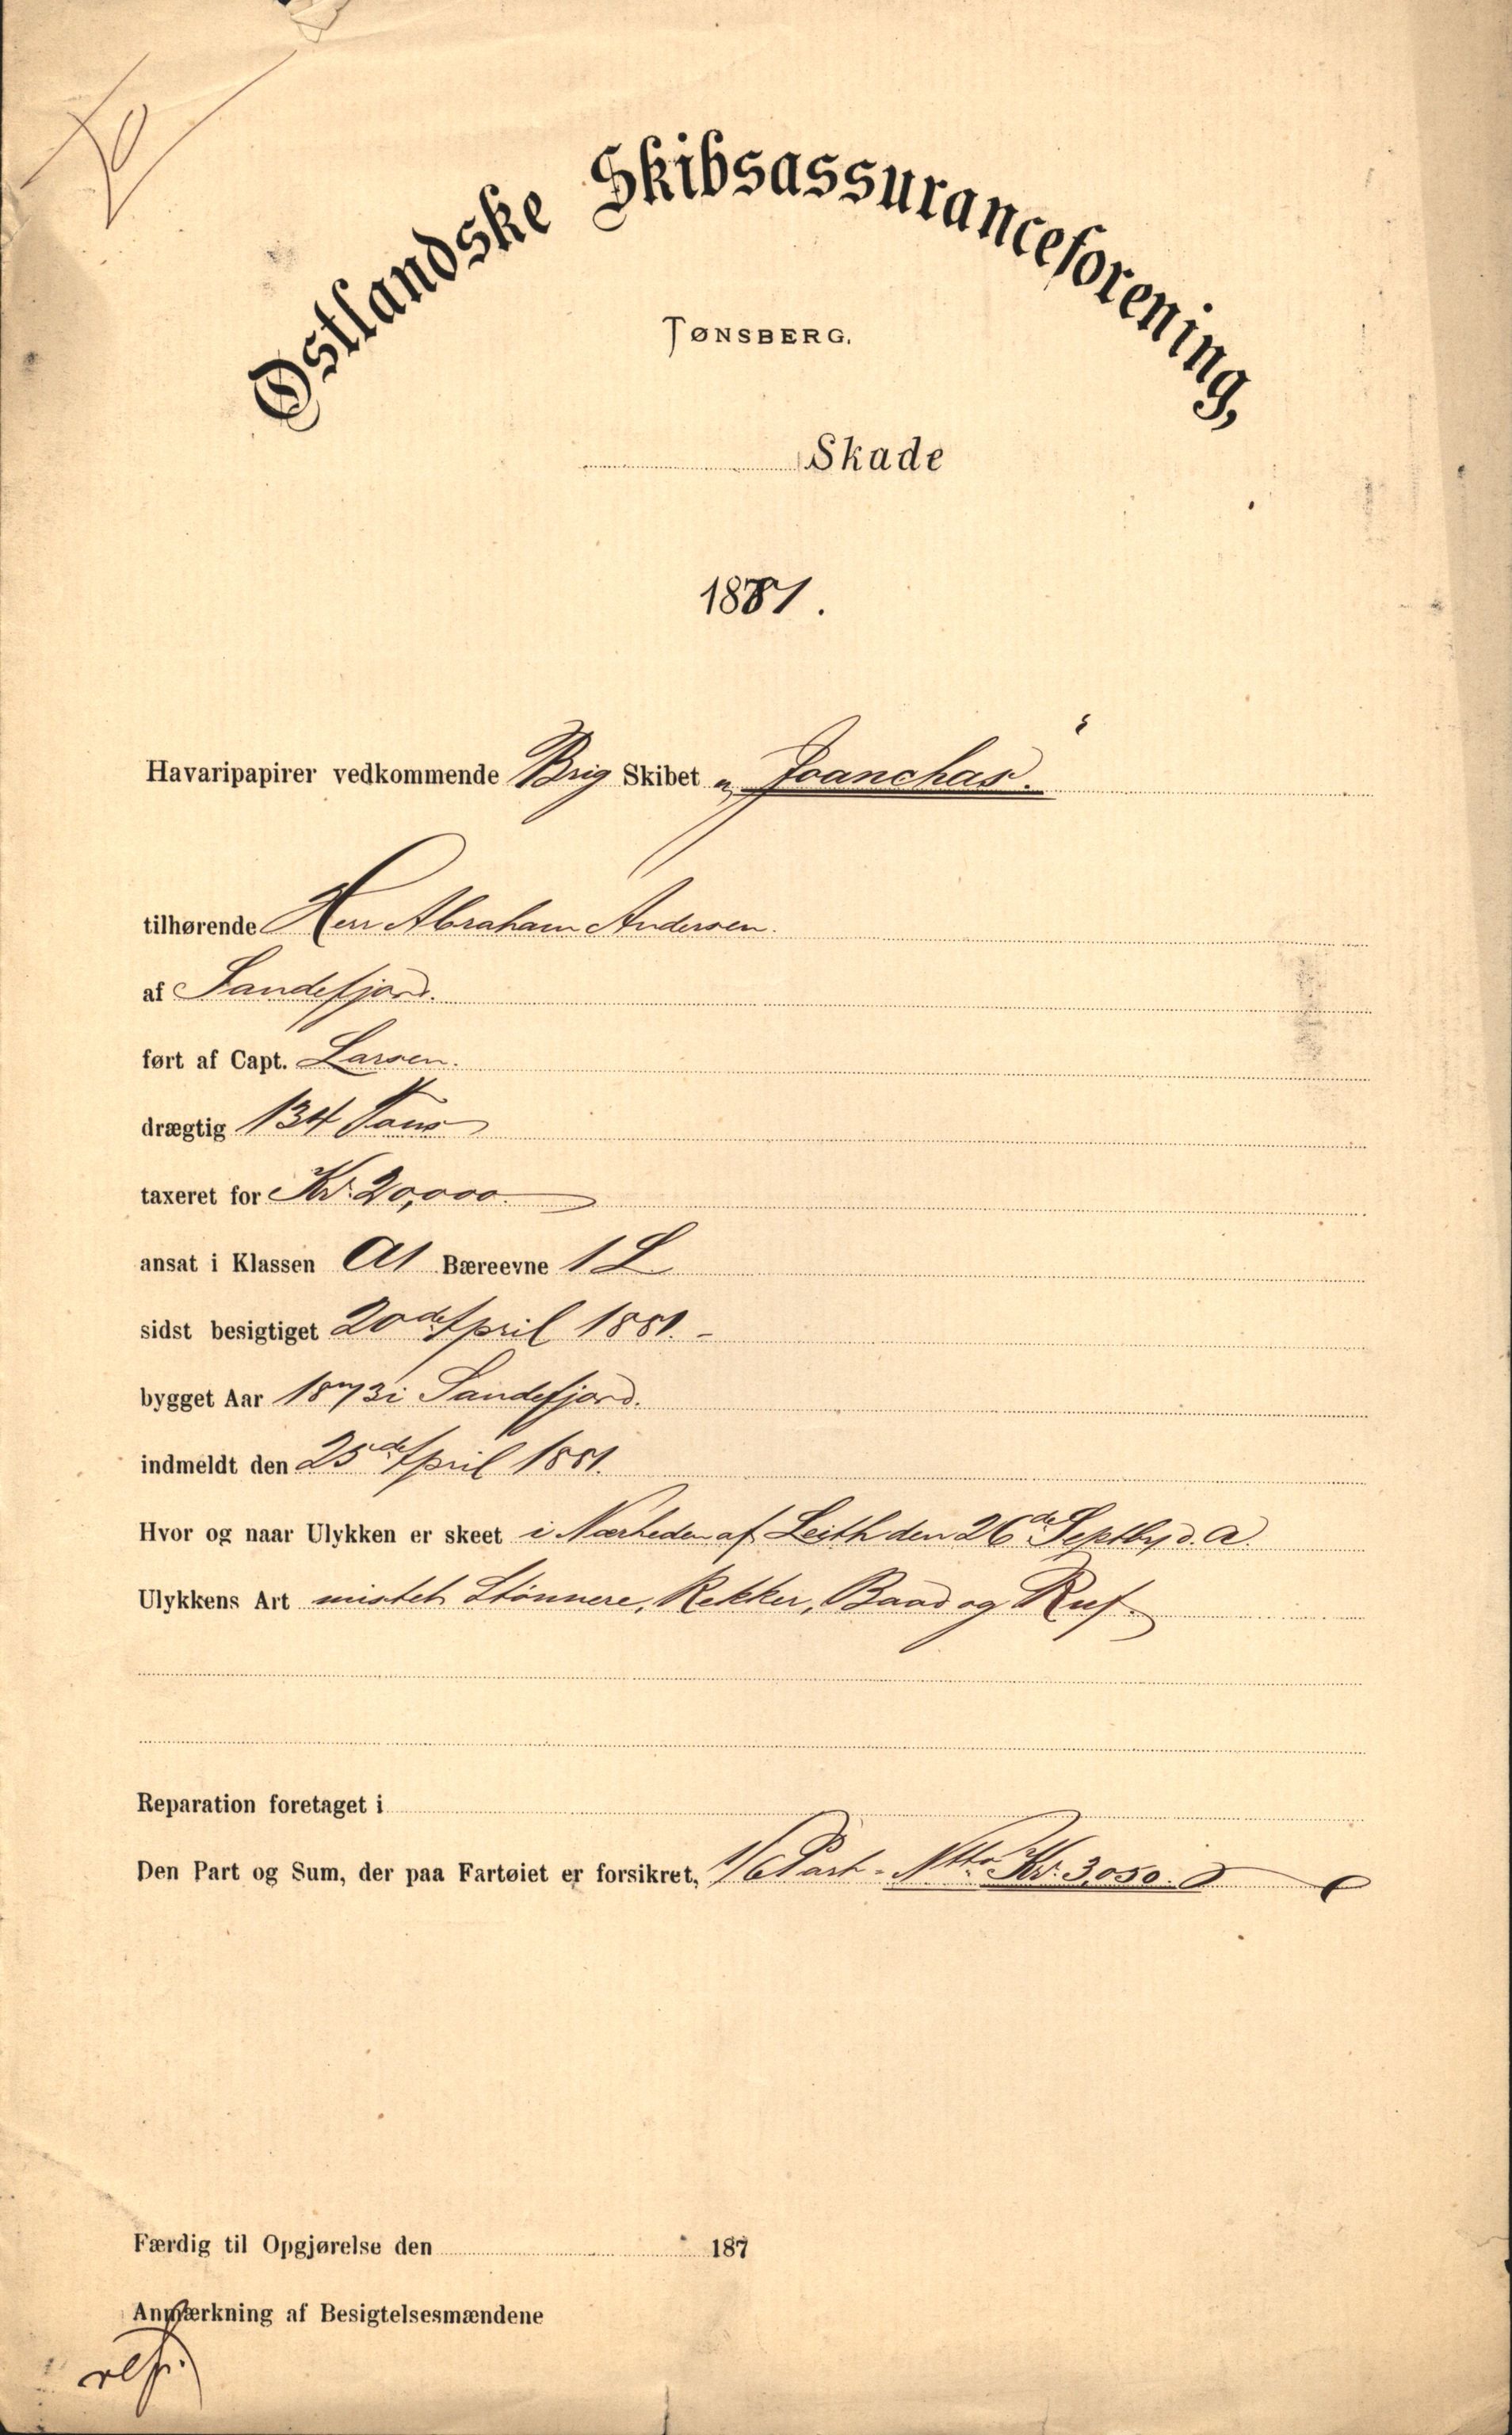 Østlandske Skibsassuranceforening,
TØNSBERG.
Skade
1881.
Havaripapirer vedkommende Brig Skibet „Joanchas“
tilhørende Herr Abraham Andersen.
af Sandefjord.
ført af Capt. Larsen.
drægtig 134 Tons
taxeret for Kr. 20,000.
ansat i Klassen A1 Bæreevne 1 L
sidst besigtiget 20de April 1881. -
bygget Aar 1873 i Sandefjord.
indmeldt den 25de April 1881.
Hvor og naar Ulykken er skeet i Nærheden af Leith den 26de Septbr d. A.
Ulykkens Art mistet Stønnere, Rekker, Baad og Ruf.
Reparation foretaget i
Den Part og Sum, der paa Fartøiet er forsikret, 1/6 Part - Ntto Kr. 3,050.
Færdig til Opgjørelse den 187
Anmærkning af Besigtelsesmændene